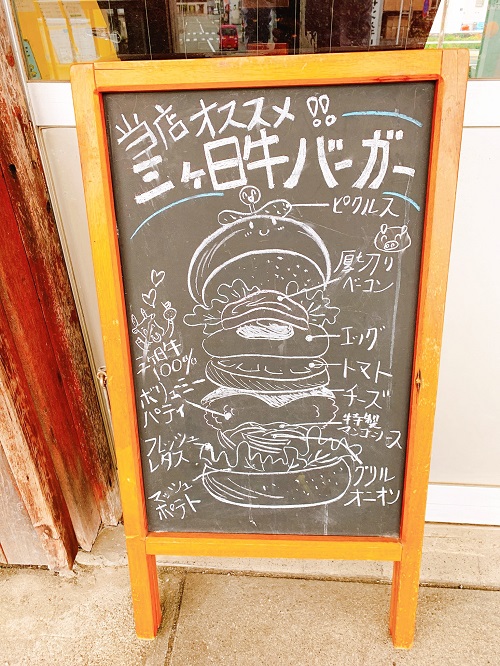 当店オススメ!!
三ヶ日牛バーガー
ピクルス
厚切り
ベーコン
エッグ
トマト
チーズ
特製
マンゴーソース
グリル
オーオン
三ヶ日牛
100%
ボリューミー
パティ
フレッシュ
レタス
マッシュ
ポテト